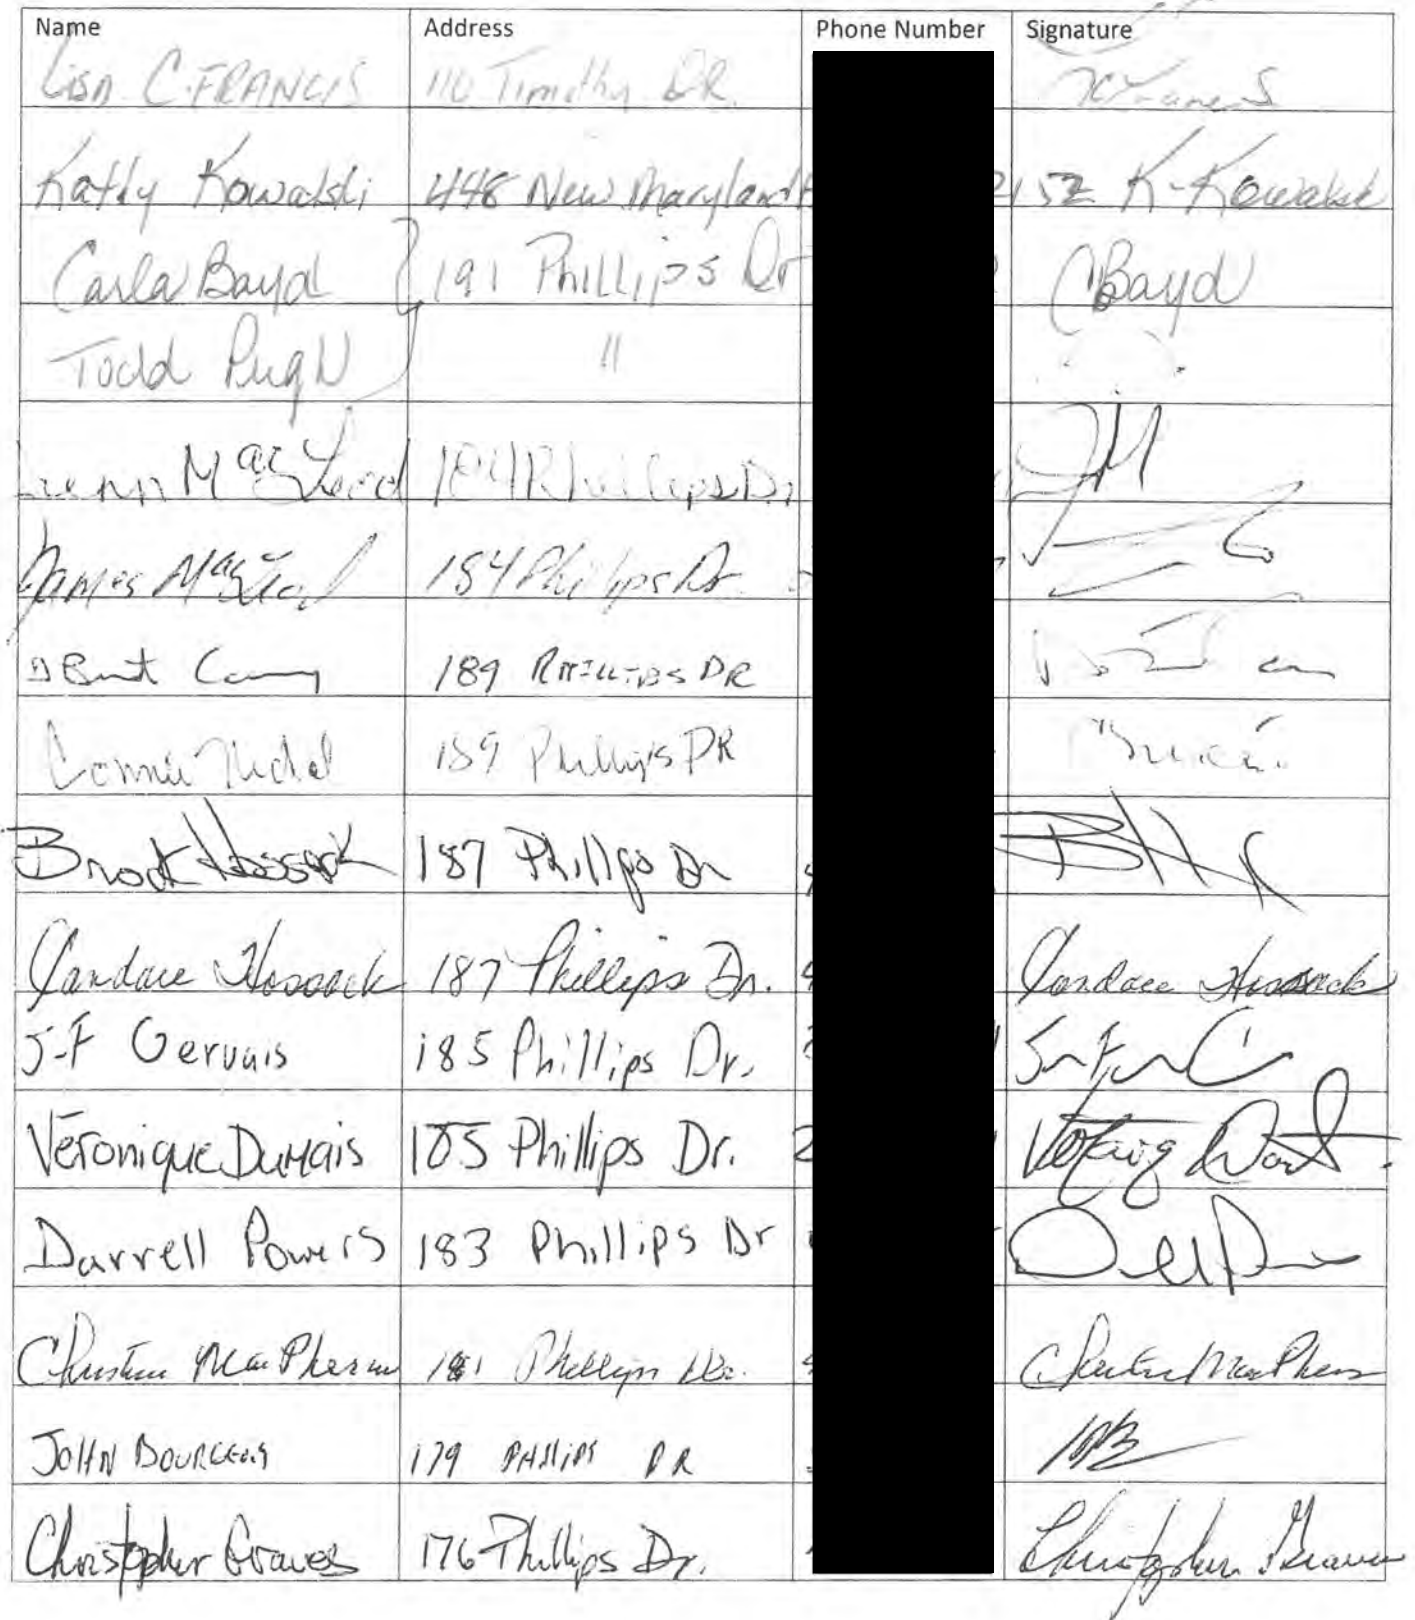 Name Address Phone Number Signature
Lisa C. FRANCIS 110 Timothy DR.
Kathy Kowalski 448 New Maryland H 2152 K-Kowalski
Carla Boyd 191 Phillips Dr CBoyd
Todd Pugh "
MacLeod 184 Phillips Dr
James MacLeod 184 Phillips Dr.
Brent 189 PHILLIPS DR
Connie 189 Phillips DR
Brock Hossack 187 Phillips Dr
Candace Hossack 187 Phillips Dr. Candace Hossack
J-F Gervais 185 Phillips Dr.
Véronique Dumais 185 Phillips Dr. 2
Darrell Powers 183 Phillips Dr
Christine MacPherson 181 Phillips Dr. Christine MacPherson
JOHN BOURGEOIS 179 PHILLIPS DR
Christopher Graves 176 Phillips Dr. Christopher Graves